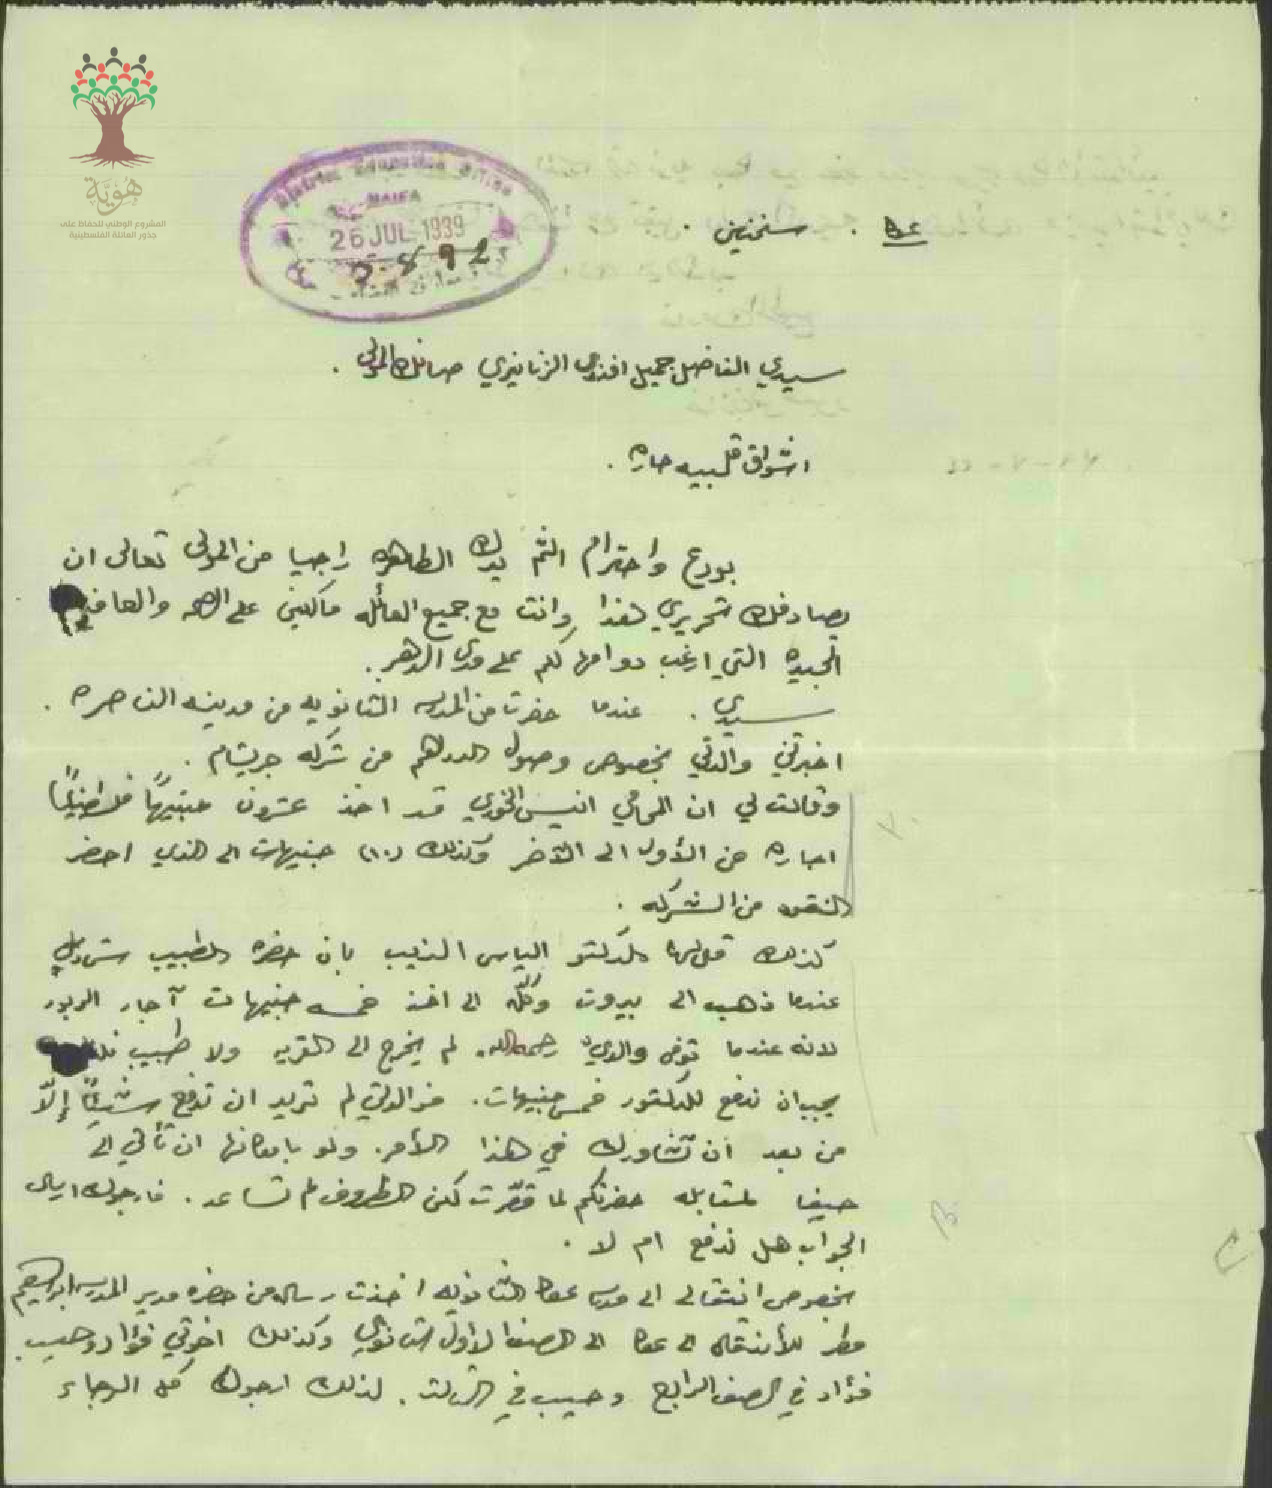 هُوِيَّة
المشروع الوطني للحفاظ على
جذور العائلة الفلسطينية
District Education Office
HAIFA
26 JUL 1939
عكا . سخنين .
سيدي الفاضل جميل افندي الزنانيري صانك المولى .
اشواق قلبيه حاره .
بورع واحترام الثم يدك الطاهره راجيا من المولى تعالى ان
يصادفك تحريري هذا وانت مع جميع العائله مالكين على الصحه والعافيه
الجيده التي ارغب دوامها لكم على مدى الدهر .
سيدي . عندما حضرت من المدرسه الثانويه من مدينه الناصره .
اخبرتني والدتي بخصوص وصول الدراهم من شركه جريشام .
وقالت لي ان المحامي انيس الخوري قد اخذ عشرون جنيهاً فلسطينياً
اجاره من الأول الى الآخر وكذلك (١٠) جنيهات الى الذي احضر
النقود من الشركه .
كذلك قال لها الدكتور الياس الذيب بان حضره الطبيب
عندما ذهب الى بيروت وكّله الى اخذ خمسه جنيهات آجار
لانه عندما توفى والدي رحمه الله . لم يخرج الى القريه ولا طبيب
يجب ان ندفع للدكتور خمس جنيهات . فوالدتي لم تريد ان تدفع شيئاً إلّا
من بعد ان تشاورك في هذا الأمر . ولو بامكانها ان تأتي الى
حيفا لمقابله حضرتكم لما قصّرت لكن الظروف لم تساعد . فارجوك ارسال
الجواب هل ندفع ام لا .
بخصوص انتقالي الى مدرسه عكا الثانويه اخذت رساله من حضره مدير المدرسه ابراهيم
مطر للأنتقال الى عكا الى الصف الاول الثانوي وكذلك اخوتي فؤاد وحبيب
فؤاد في الصف الرابع وحبيب في الثالث . لذلك ارجوك كل الرجاء